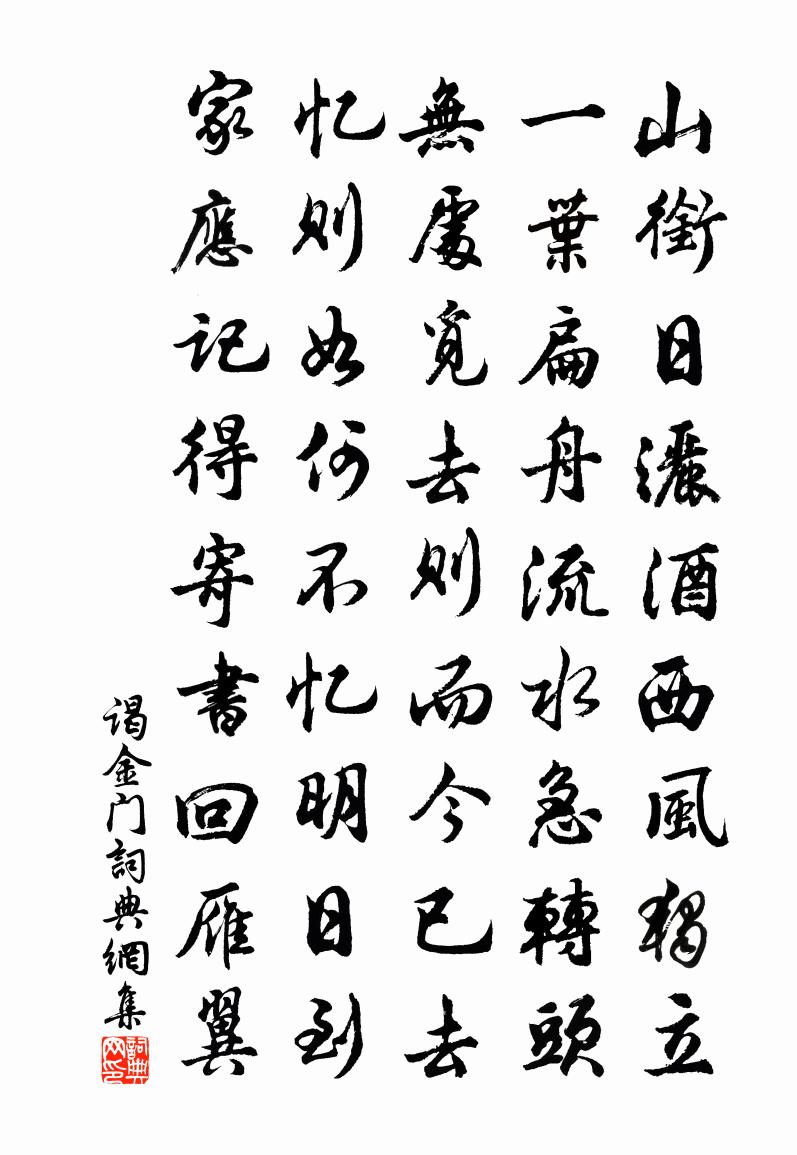 山銜日灑酒西風獨立
一葉扁舟流水急轉頭
無處覓去則而今已去
忆則如何不忆明日到
家應記得寄書回雁翼
谒金门詞典網集
詞典网印